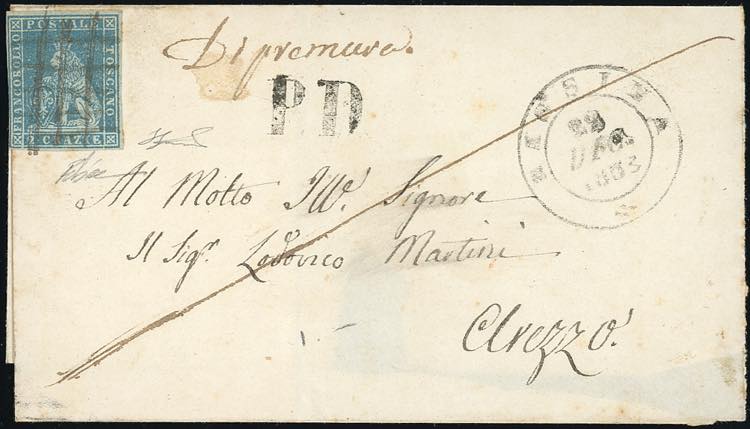 FRANCOBOLLO POSTALE TOSCANO
2 CRAZIE
Di premura.
P.D
MARSILIANA
29
DEC.
1853
Al Molto Ill.e Signore
Il Sig.r Lodovico Martini
Arezzo